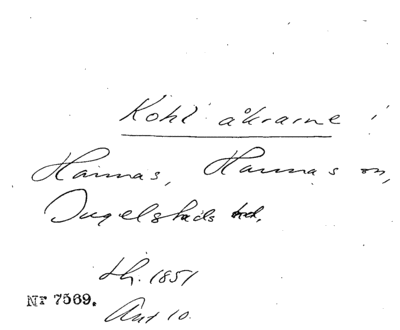 Kohl åkrarne i
Hannas, Hannas sn,
Ingelstads hd.
th. 1851
Nr 7569.
Ant 10.